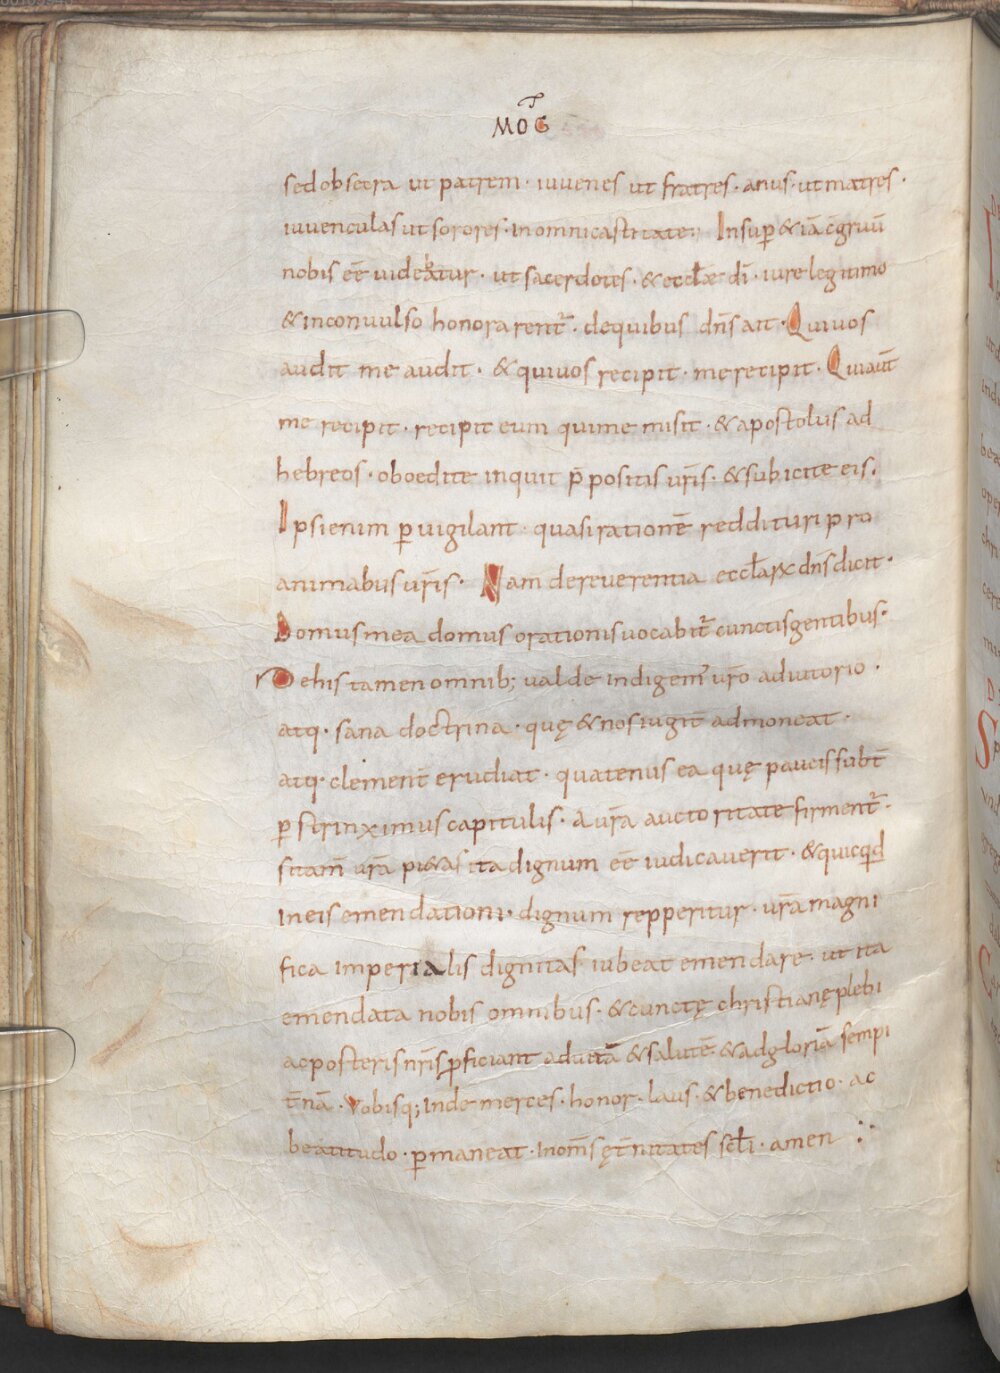 MOG
sed obsecra ut patrem · iuvenes ut fratres · anus · ut matres ·
iuvenculas ut sorores · in omni castitate; Insup̄ & iā c̄gruū
nobis eē videatur · ut sacerdotes · & eccłae dī · iure legitimo
& inconvulso honorarent̄ · de quibus dn̄s ait · Qui vos
audit me audit · & qui vos recipit · me recipit · Qui aut̄
me recipit · recipit eum qui me misit · & apostolus ad
hebreos · oboedite inquit p̄positis vr̄is · & subicite eis ·
Ipsi enim ꝑvigilant · quasi rationē reddituri pro
animabus vr̄is · Nam de reverentia dn̄s dicit ·
Domus mea domus orationis vocabit̄ cunctis gentibus ·
De his tamen omnib; valde indigem̄ vr̄o adiutorio ·
atq · sana doctrina · quę & nos iugit̄ admoneat ·
atq · clement̄ erudiat · quatenus ea quę paucis subt̄
ꝑstrinximus capitulis · a vr̄a auctoritate firment̄ ·
si tam̄ vr̄a pi&as ita dignum eē iudicaverit · & quicqd
in eis emendationi · dignum repperitur · vr̄a magni
fica imperialis dignitas iubeat emendare · ut ita
emendata nobis omnibus · & cunctę christianę plebi
ac posteris nr̄is ꝓficiant ad vitā & salutē · & ad gloriā sempi
t̄nā · Vobisq; inde merces · honor · laus · & benedictio · ac
beatitudo · ꝑmaneat · in om̄s ęt̄nitates scłi · amen :·